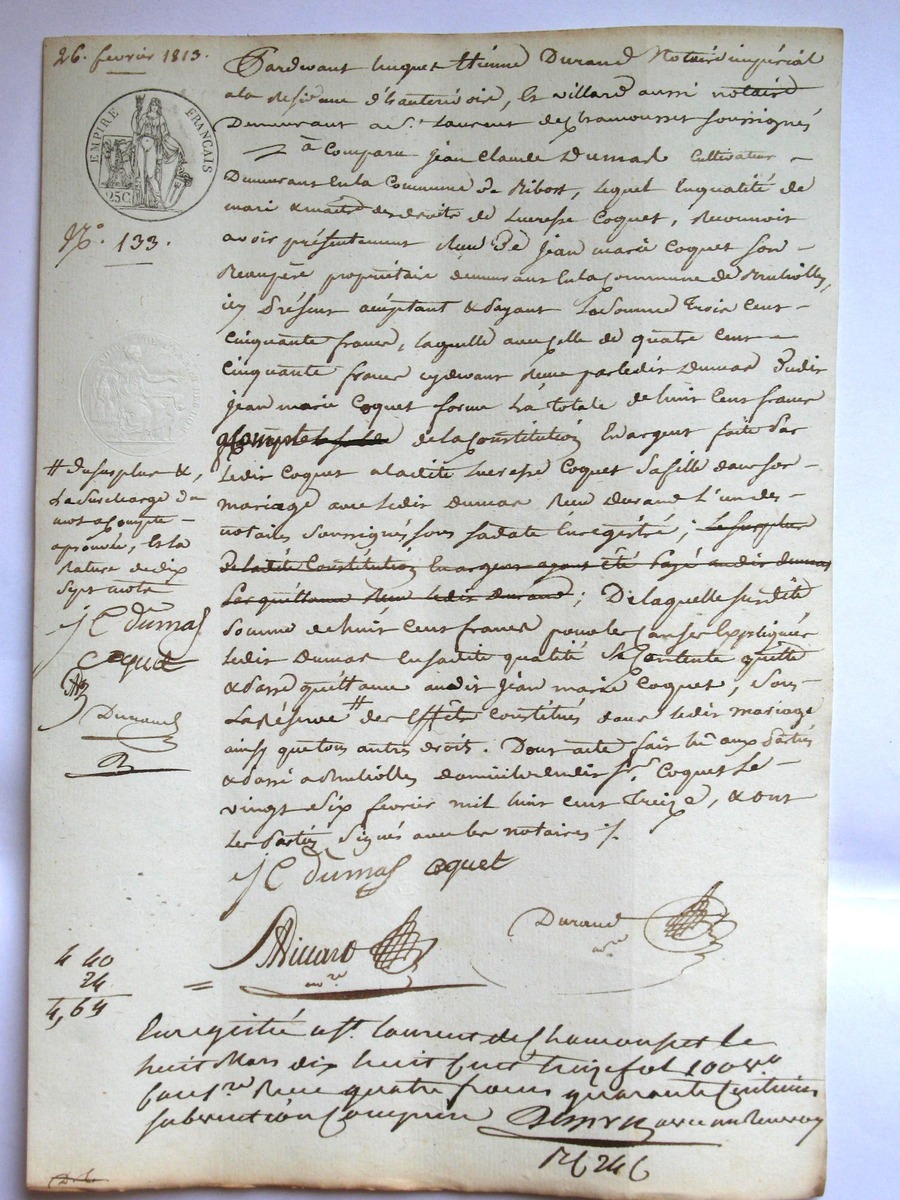 26. fevrier 1813.
EMPIRE FRANÇAIS
25C
N.° 133.
Pardevant huguet Etienne Durand Notaire impérial
a la Residence d'hauterivoire, Et Villard aussi notaire
Demeurant a S.t Laurent de Chamousset soussignés
à Comparu Jean Claude Dumas Cultivateur
Demeurant En la Commune de Ribost, Lequel En qualité de
mari & maitre des droits de Lucresse Coquet, Reconnoit
avoir présentement Reçu De Jean marie Coquet son
Beaupère propriétaire demeurant En la Commune de Brulioles,
icy Présent acéptant & Payant La Somme Trois Cent
Cinquante francs, laquelle avec celle de quatre cent
Cinquante francs cydevant Reçue par ledit Dumas Dudit
Jean marie Coquet forme La totale de huit Cent francs
de la Constitution En argent faite Par
Ledit Coquet a ladite Lucresse Coquet Sa fille dans son
mariage avec Ledit Dumas Reçu Durand L'un des
notaires Soussignés sous sa date Enregistré ; Le surplus
de ladite Constitution En argent ayant été Payé audit Dumas
Sur quittance Reçu Ledit Durand ; De laquelle susdite
Somme de huit Cent francs pour les Causes Expliquées
Ledit Dumas En sadite qualité Se Contente quitte
& Passe quittance audit Jean marie Coquet, Sous
La Réserve # des Effets Constitués dans ledit mariage
ainsy que tous autres droits. Dont acte fait lû aux Parties
& Passé a Brulioles domicile dudit S.r Coquet Le
vingt Six fevrier mil huit cent Treize, & ont
Les Parties Signés avec les notaires ./.
# du surplus &,
La Surcharge du
mot acompte
aprouvée, Et la
Rature de dix
Sept mots
J C Dumas
Coquet
Durand
J C Dumas Coquet
Villard
n.re
Durand
n.re
4 40
24
4,64
Enregistré a St. Laurent de Chamousset le
huit Mars dix huit Cent treize fol 100 v.o
Case 7.e Reçu quatre francs quarante Centimes
subvention Comprise